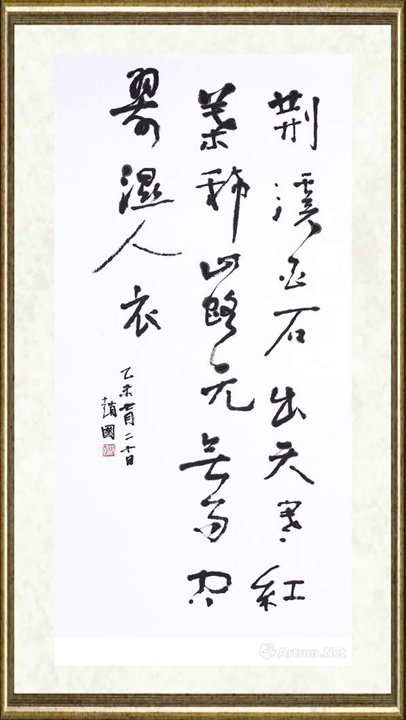 荊溪白石出天寒紅
葉稀山路元無雨空
翠濕人衣
乙未月二十日
國
Artron.Net